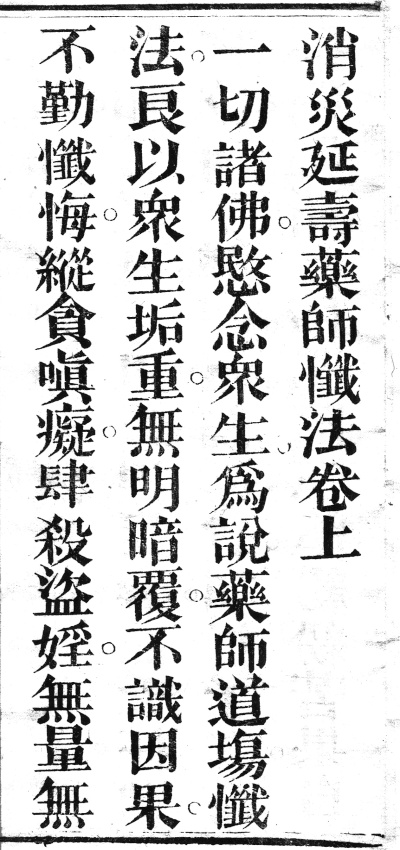 消災延壽藥師懺法卷上
一切諸佛愍念衆生爲說藥師道塲懺
法良以衆生垢重無明暗覆不識因果
不勤懺悔縱貪嗔癡肆殺盜婬無量無